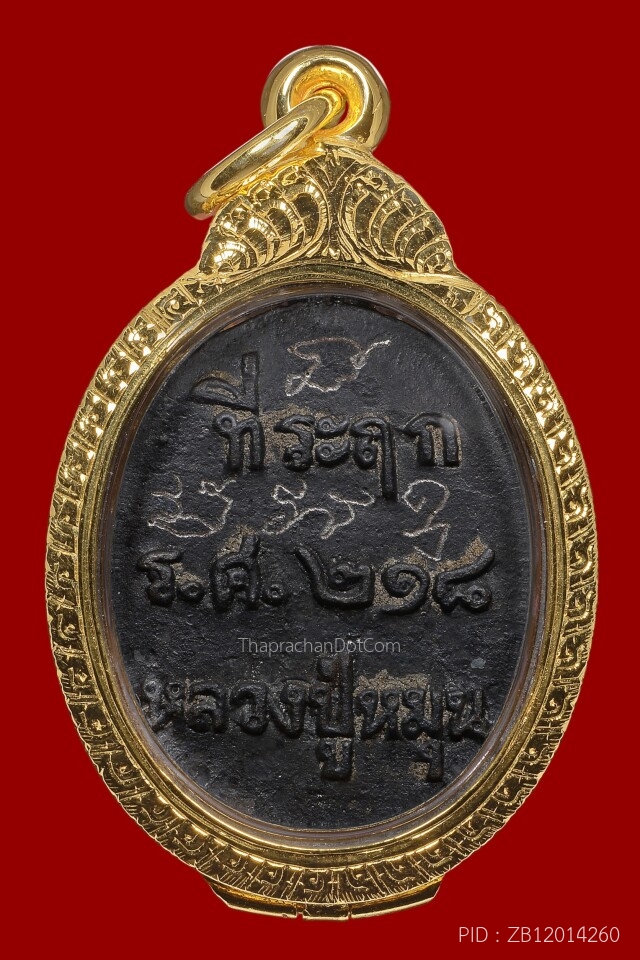 ที่ระฤก
ร.ศ. ๒๑๘
ThaprachanDotCom
หลวงปู่หมุน
PID : ZB12014260